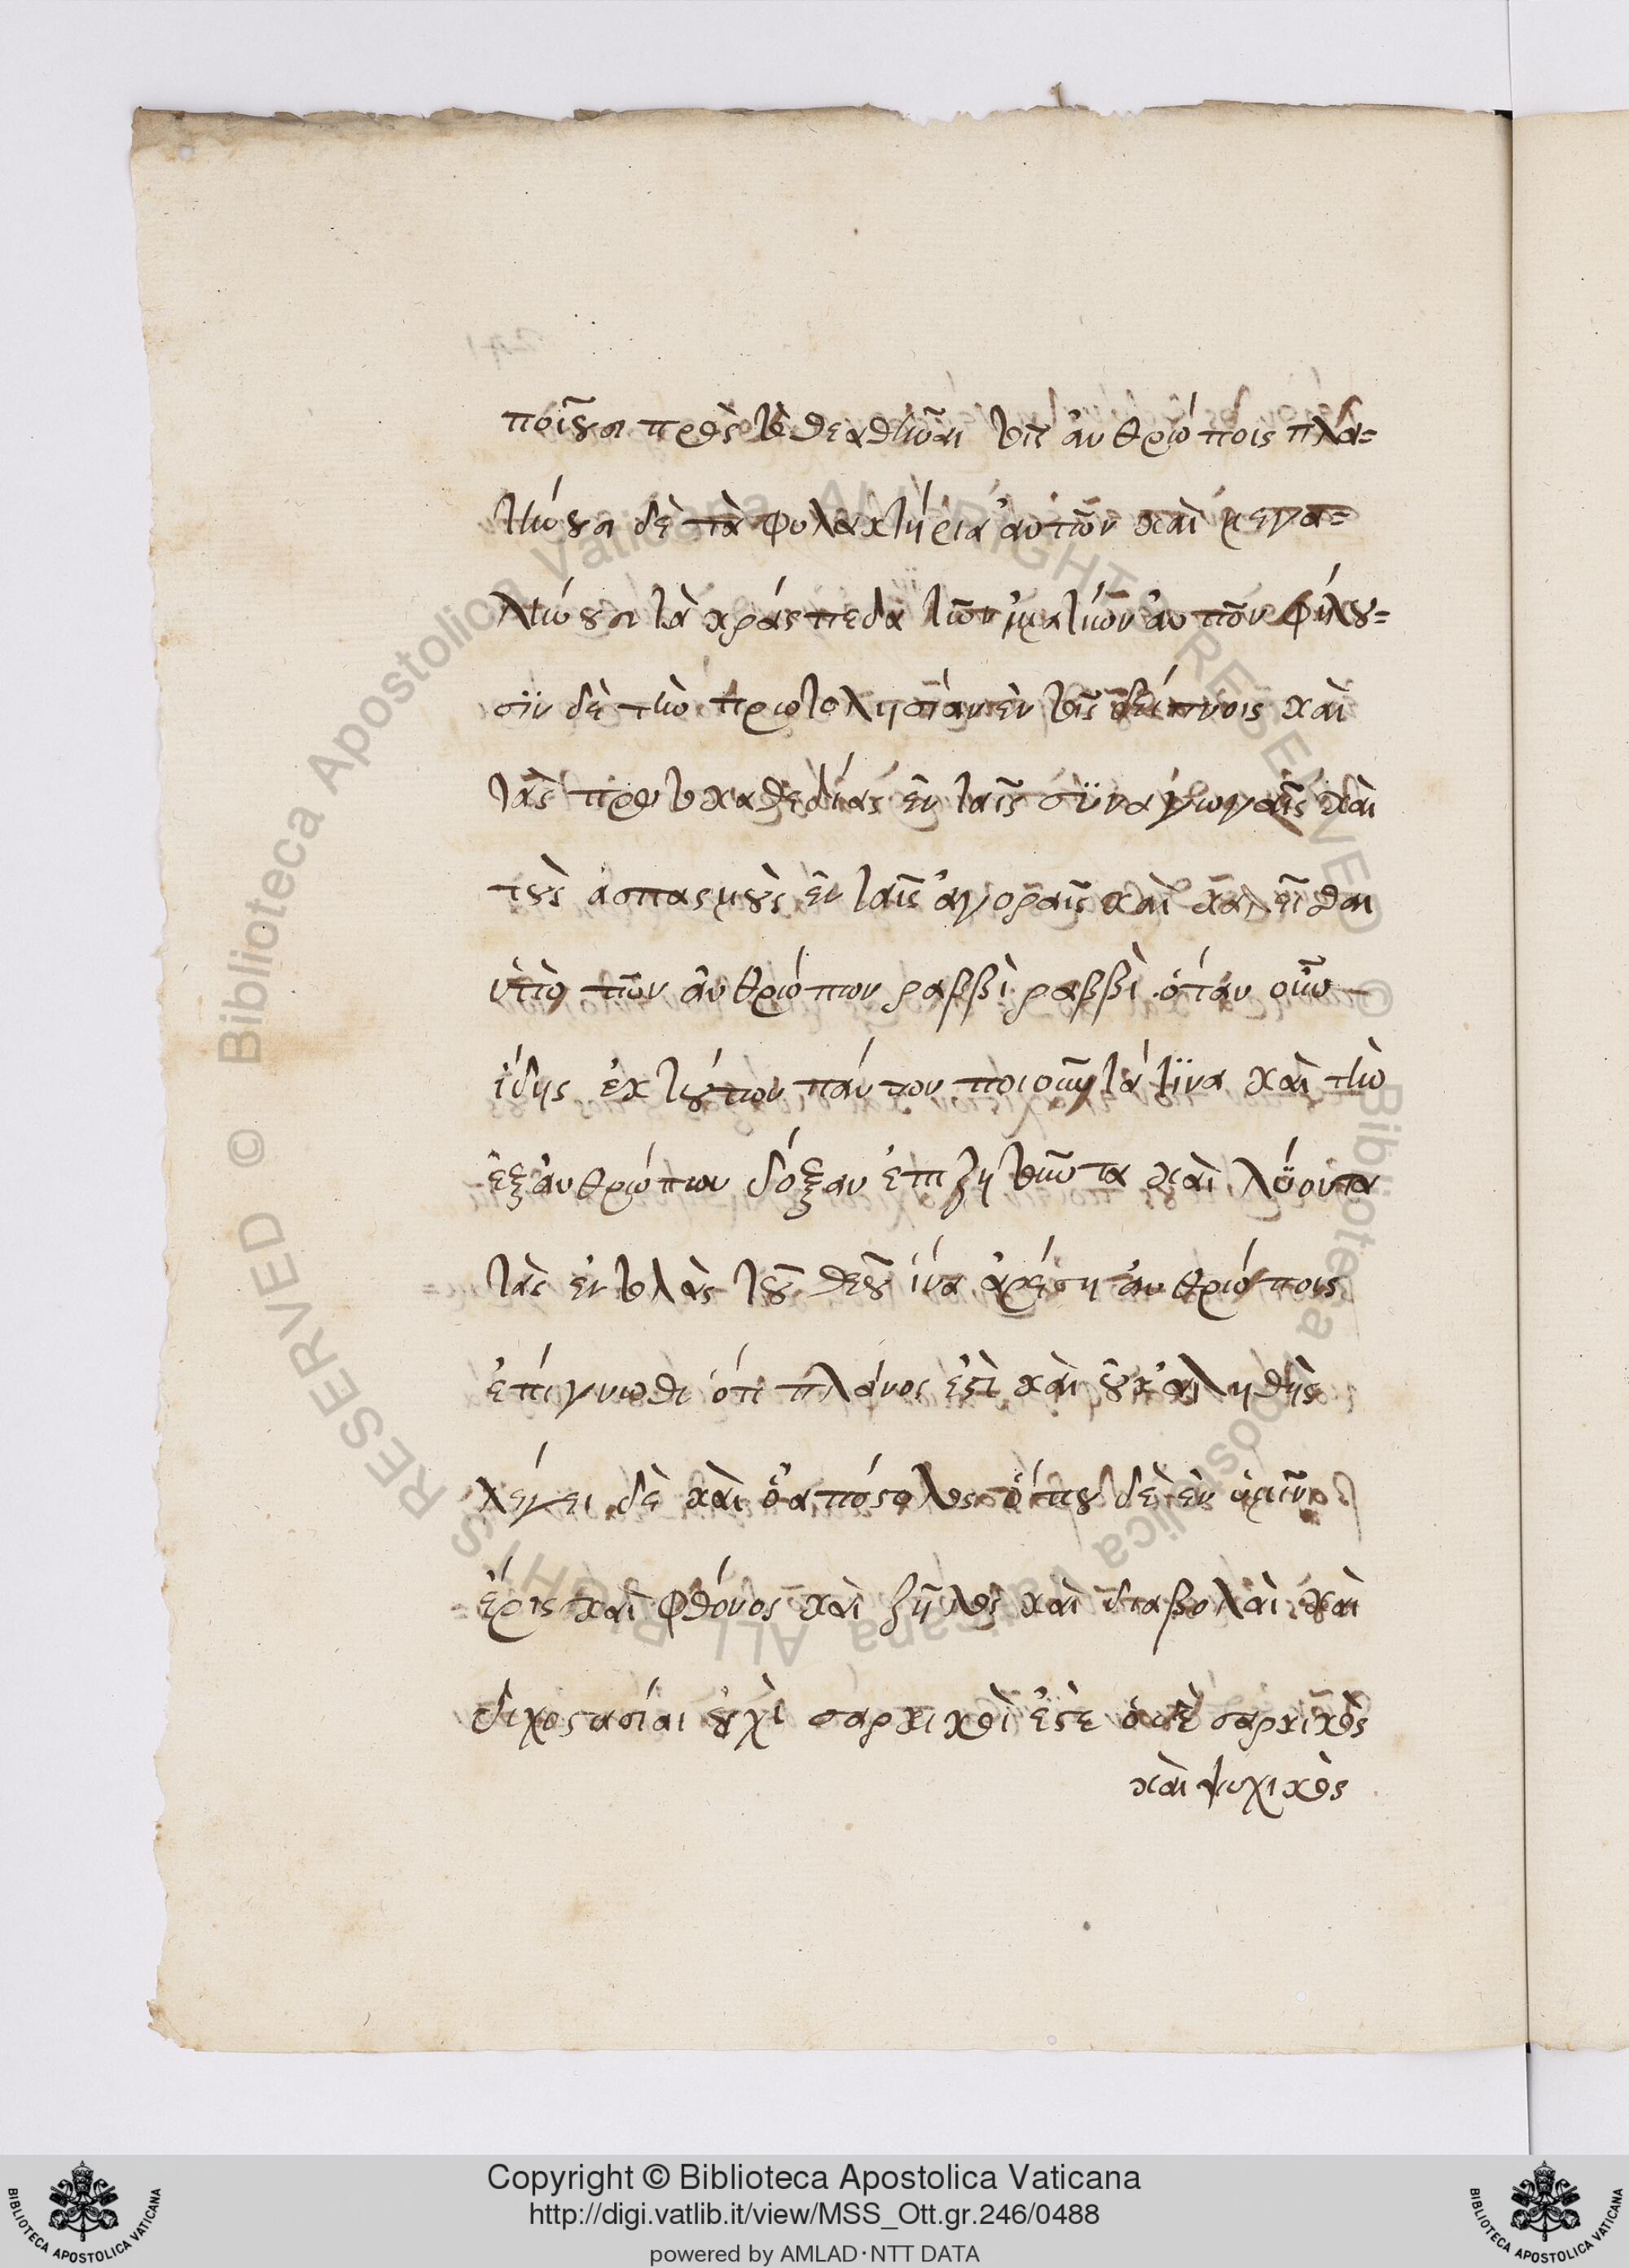 ποιοῦσι πρὸς τὸ θεαθῆναι τοῖς ἀνθρώποις πλα=
τύνουσι δὲ τὰ φυλακτήρια αὐτῶν καὶ μεγα=
λύνουσι τὰ κράσπεδα τῶν ἱματίων αὐτῶν φιλοῦ=
σϊν δὲ τὴν πρωτοκλησίαν ἐν τοῖς δείπνοις καὶ
τὰς πρωτοκαθεδρίας ἐν ταῖς συναγωγαῖς καὶ
τοὺς ἀσπασμοὺς ἐν ταῖς ἀγοραῖς καὶ καλεῖσθαι
ὑπὸ τῶν ἀνθρώπων ραββὶ ραββὶ ὅταν οὖν
ἴδης ἐκ τούτων πάντων ποιοῦντά τινα καὶ τὴν
ἐξ ἀνθρώπων δόξαν ἐπιζητοῦντα καὶ λύοντα
τὰς ἐντολὰς τοῦ θεοῦ ἵνα ἀρέση ἀνθρώποις
ἐπίγνωθι ὅτι πλάνος ἐστὶ καὶ οὐκ ἀληθὴς
λέγει δὲ καὶ ὁ ἀπόστολος ὅπου δὲ ἐν ὑμῖν
ἔρις καὶ φθόνος καὶ ζῆλος καὶ διαβολαὶ καὶ
διχοστασίαι οὐχὶ σαρκικοὶ ἐστε ὁ δὲ σαρκικὸς
καὶ ψυχικὸς
Biblioteca Apostolica Vaticana ALL RIGHTS RESERVED ©
Biblioteca Apostolica Vaticana ALL RIGHTS RESERVED ©
Copyright © Biblioteca Apostolica Vaticana
http://digi.vatlib.it/view/MSS_Ott.gr.246/0488
powered by AMLAD·NTT DATA
BIBLIOTECA APOSTOLICA VATICANA
BIBLIOTECA APOSTOLICA VATICANA